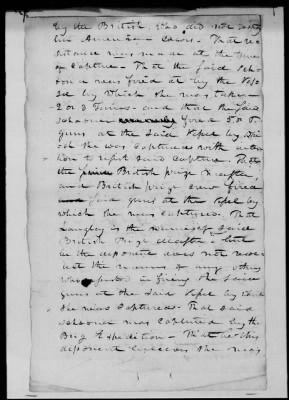 by the British, who did not
the American Laws. That re-
sistance was made at the time
of Capture. That the said Scho-
oner was fired at by the Ves-
sel by which she was taken
2 or 3 times. and that the said
schooner fired
guns at the said Vessel by wh-
ich she was Captured with inten-
tion to resist said Capture. That
the British prize Master,
and British prize crew fired
said guns at the Vessel by
which she was Captured. That
Langley is the name of said
British Prize Master - but
as the deponent does not recol-
lect the names of any others
who assisted in firing the said
guns at the said Vessel by which
she was Captured. That said
schooner was Captured by the
Brig Expedition - That as this
deponent believes she was